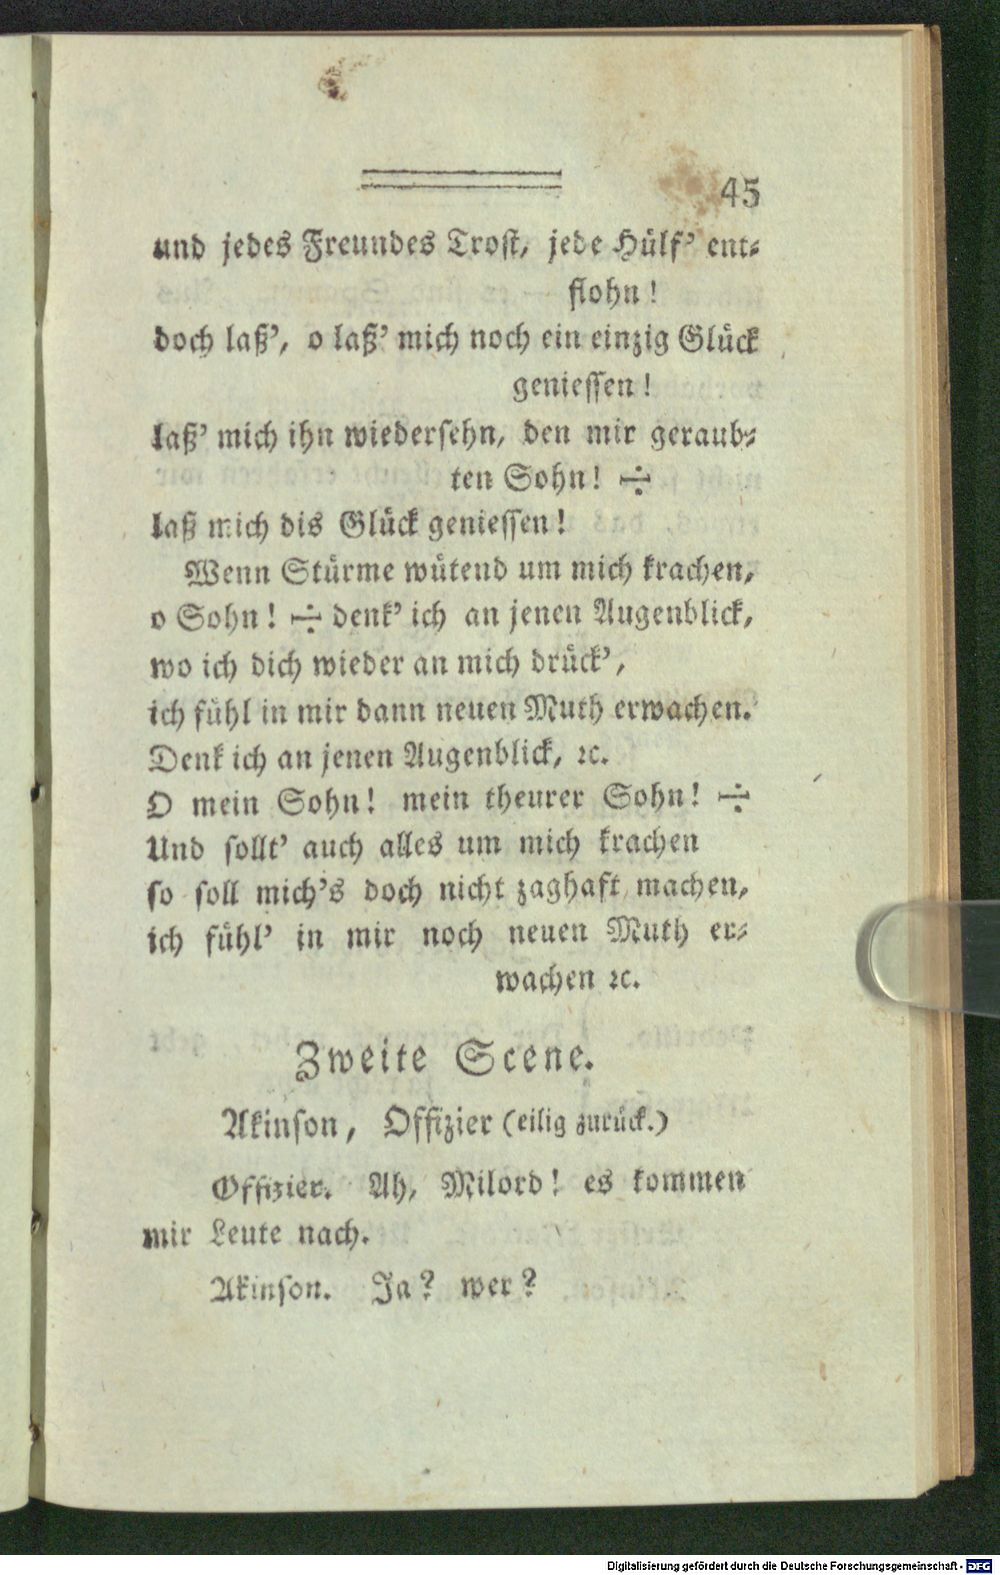 45
und jedes Freundes Trost, jede Hülf' ent-
flohn!
doch laß', o laß' mich noch ein einzig Glück
geniessen!
laß' mich ihn wiedersehn, den mir geraub-
ten Sohn! ÷
laß mich dis Glück geniessen!
Wenn Stürme wütend um mich krachen,
o Sohn! ÷ denk' ich an jenen Augenblick,
wo ich dich wieder an mich drück',
ich fühl in mir dann neuen Muth erwachen.
Denk ich an jenen Augenblick, ꝛc.
O mein Sohn! mein theurer Sohn! ÷
Und sollt' auch alles um mich krachen
so soll mich's doch nicht zaghaft machen,
ich fühl' in mir noch neuen Muth er-
wachen ꝛc.
Zweite Scene.
Akinson, Offizier (eilig zurück.)
Offizier. Ah, Milord! es kommen
mir Leute nach.
Akinson. Ja? wer?
Digitalisierung gefördert durch die Deutsche Forschungsgemeinschaft - DFG